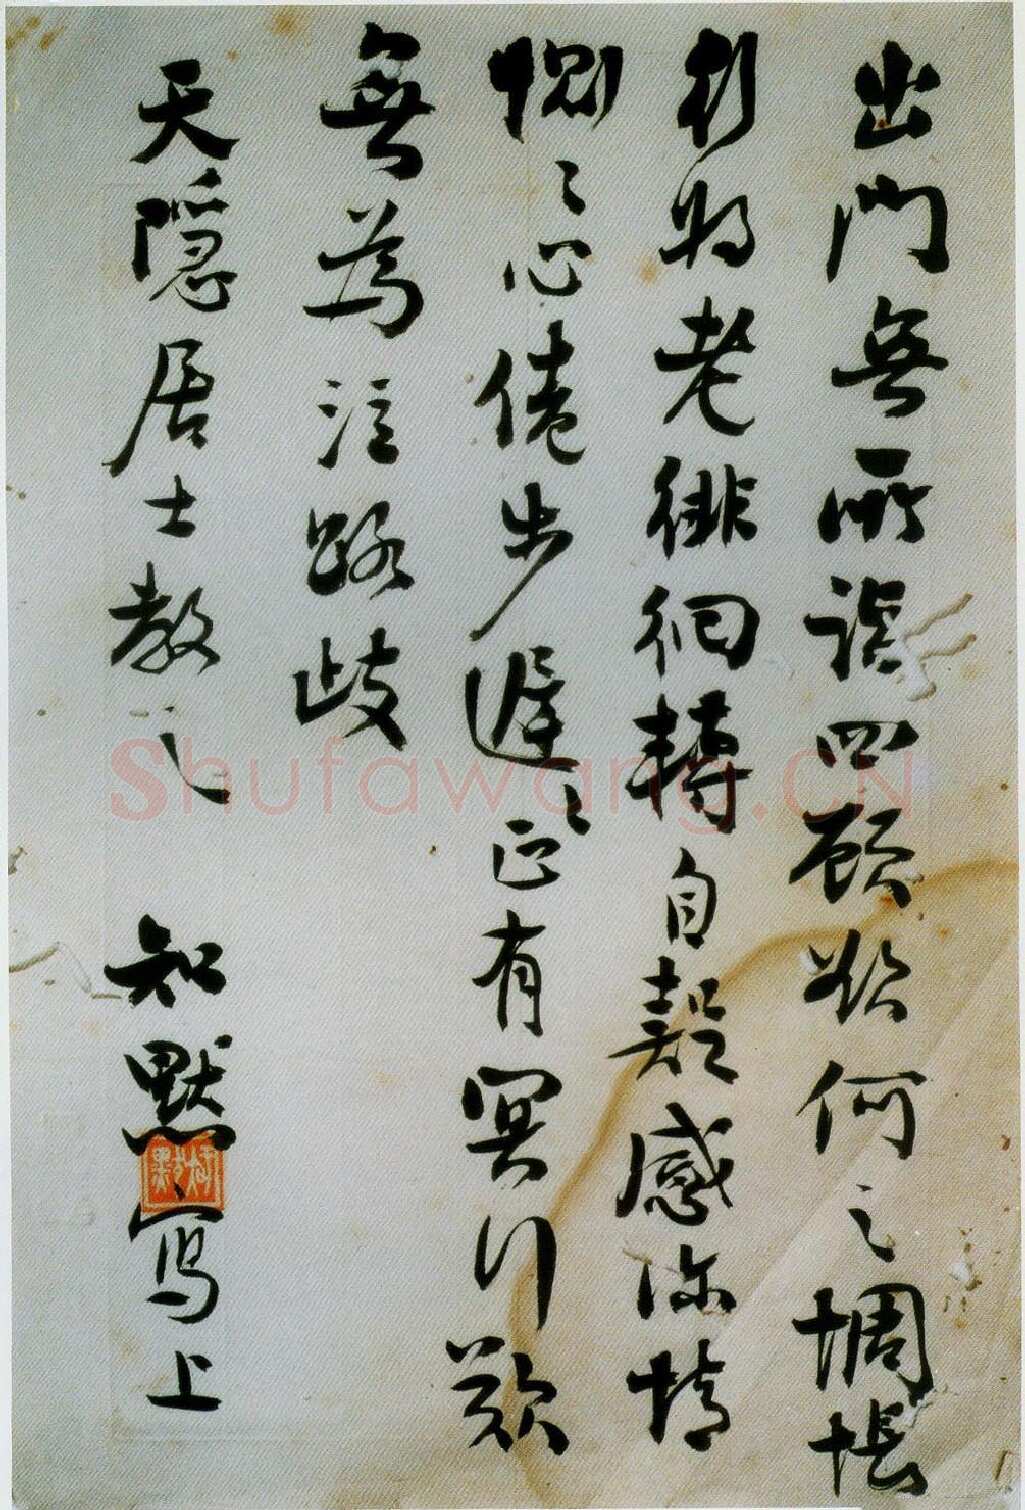 出門無所詣四顧欲何之惆悵
行將老徘徊轉自疑感深情
惻〻心倦步遲〻正有冥行歎
無為泣路歧
天隱居士教之 知默寫上
Shufawang.CN